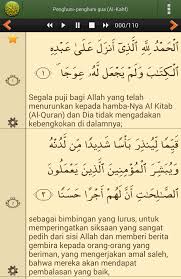 Penghuni-penghuni gua (Al-Kahf)
000/110
ٱلْحَمْدُ لِلَّهِ ٱلَّذِىٓ أَنزَلَ عَلَىٰ عَبْدِهِ
ٱلْكِتَٰبَ وَلَمْ يَجْعَل لَّهُۥ عِوَجَا ١
Segala puji bagi Allah yang telah
menurunkan kepada hamba-Nya Al Kitab
(Al-Quran) dan Dia tidak mengadakan
kebengkokan di dalamnya;
قَيِّمًا لِّيُنذِرَ بَأْسًا شَدِيدًا مِّن لَّدُنْهُ
وَيُبَشِّرَ ٱلْمُؤْمِنِينَ ٱلَّذِينَ يَعْمَلُونَ
ٱلصَّٰلِحَٰتِ أَنَّ لَهُمْ أَجْرًا حَسَنًا ٢
sebagai bimbingan yang lurus, untuk
memperingatkan siksaan yang sangat
pedih dari sisi Allah dan memberi berita
gembira kepada orang-orang yang
beriman, yang mengerjakan amal saleh,
bahwa mereka akan mendapat
pembalasan yang baik,